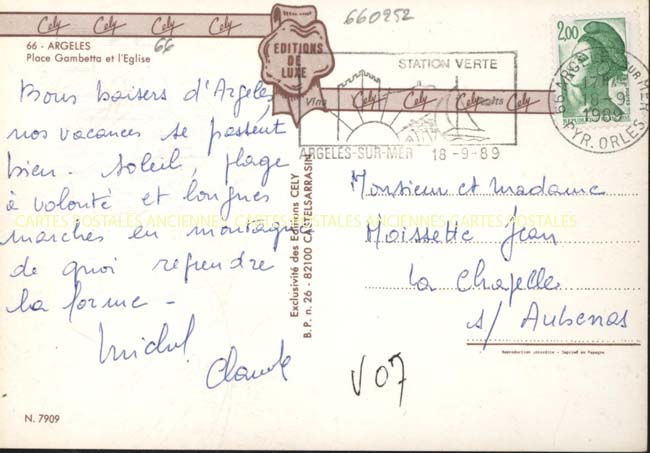 Cely Cely Cely Cely
660252
66 - ARGELES
66
Place Gambetta et l'Eglise
EDITIONS
DE
LUXE
STATION VERTE
Vins
Cely Cely Cely Cely
ARGELÈS-SUR-MER 18-9-89
2,00
18-9
1989
PYR. ORLES
Bons baisers d'Argelès,
nos vacances se passent
bien. Soleil, plage
à volonté et longues
marches en montagne
de quoi reprendre
la forme -
Michel
Claude
CARTES POSTALES ANCIENNES CARTES POSTALES
Exclusivité des Editions CELY
B.P. n. 26 - 82100 CASTELSARRASIN
Monsieur et madame
Moissette Jean
La Chapelle
s/ Aubenas
Reproduction interdite - Imprimé en Espagne
V 07
N. 7909